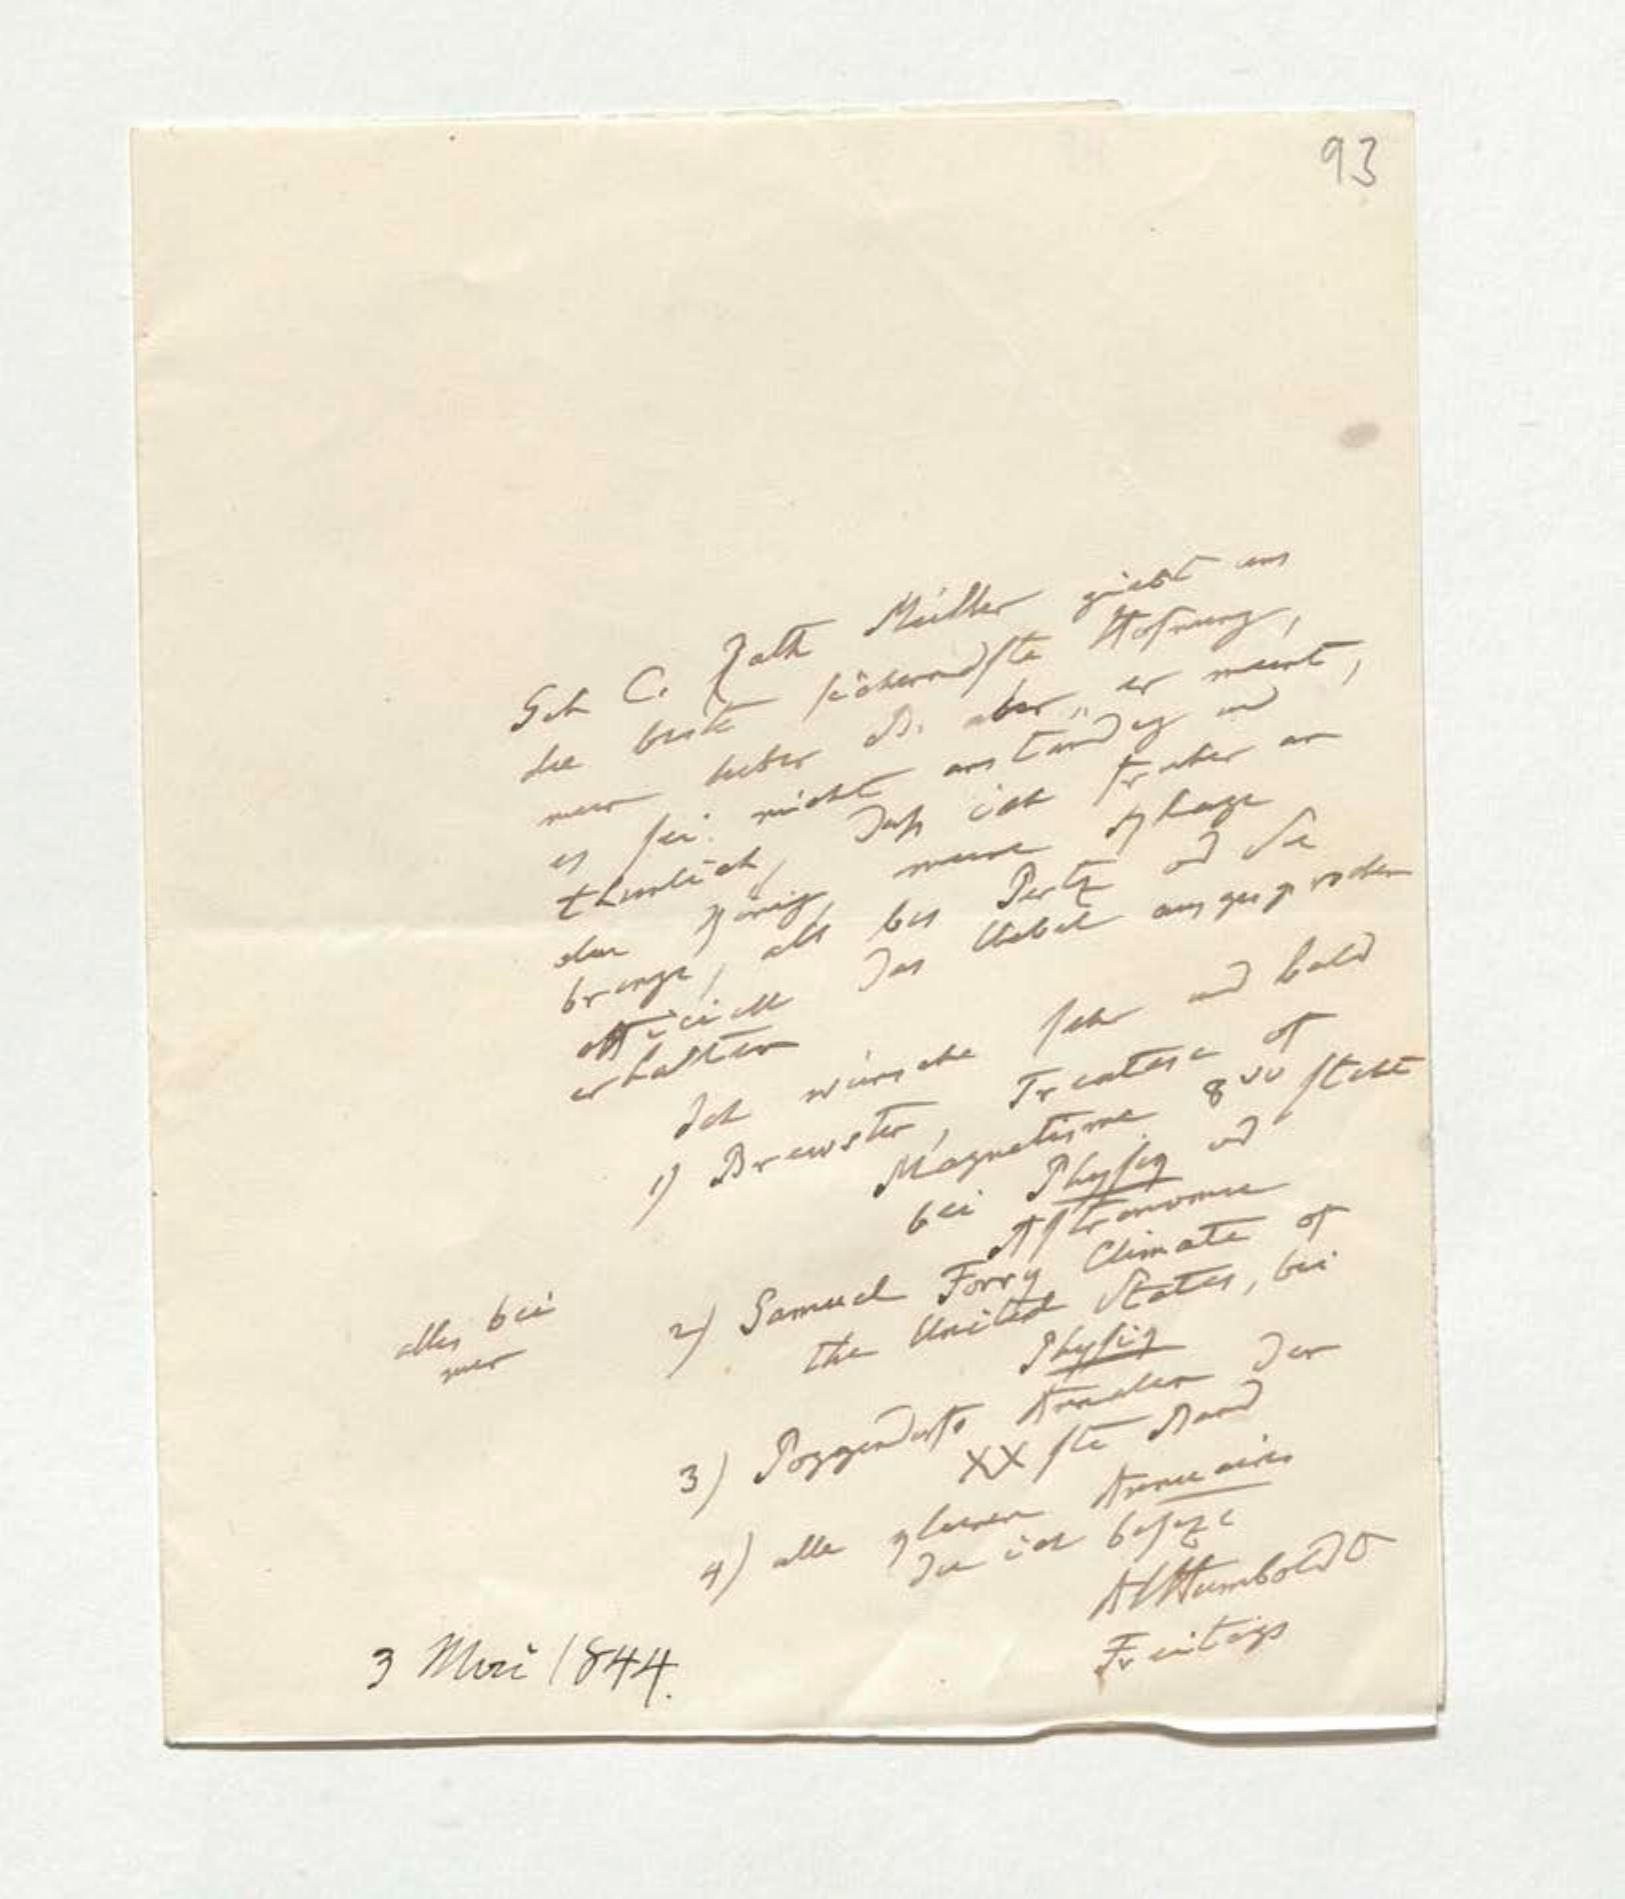 93
Geh C. Rath Müller giebt uns
die beste sicherndste Hofnung,
mein lieber B. aber „er meint,
es sei nicht anständig und
thunlich, daß ich früher an
den König meine Klage
bringe, als bis Pertz und Sie
officiell das Uebel ausgesprochen
erhalten
Ich wünsche sehr und bald
1) Brewster, Treatise of
Magnetisme 8vo steht
bei Physiq und
Astronomie
2) Samuel Forry Climate of
the United States, bei
Physiq
alles bei
mir
3) Poggendorfs Annalen der
XXste Band
4) alle kleinen Annuaires
die ich besize
AlHumboldt
Freitags
3 Mai 1844.